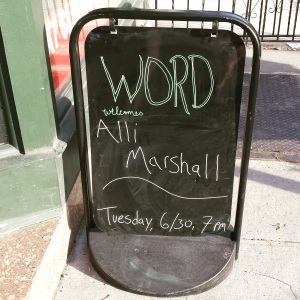 WORD
welcomes
Alli
Marshall
Tuesday, 6/30, 7pm